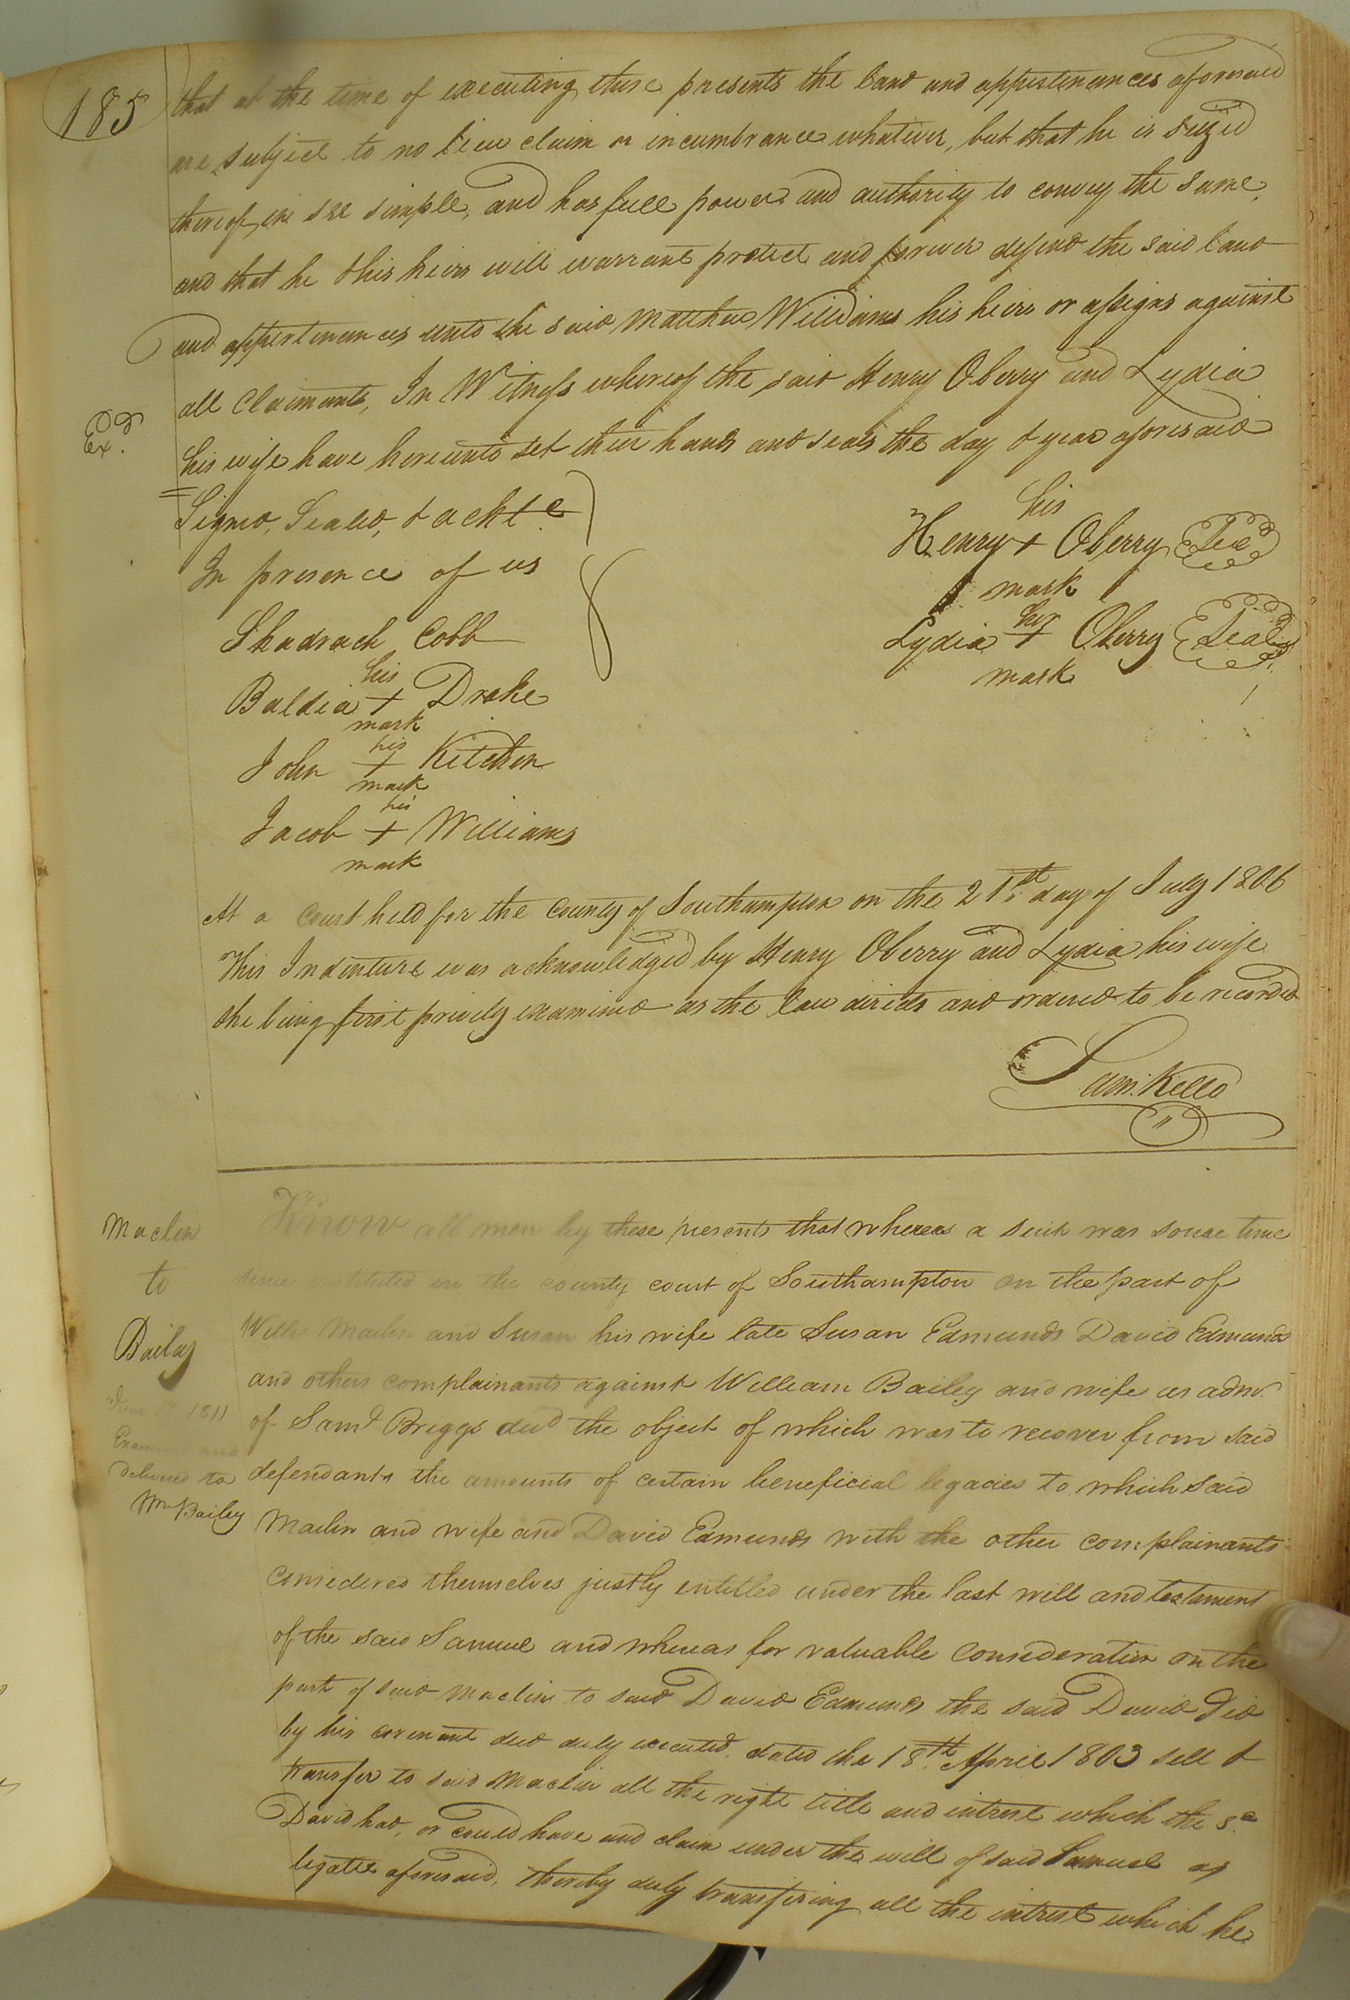 185
that at the time of executing these presents the land and appertenances aforesaid
are subject to no lien claim or incumbrance whatever, but that he is seizd
thereof in fee simple, and has full power and authority to convey the same,
and that he & his heirs will warrant protect and forever defend the said land
and appertenances unto the said Matthew Williams his heirs or assigns against
all Claimants, In Witness whereof the said Henry Oberry and Lydia
Exd.
his wife have hereunto set their hands and seals the day & year aforesaid
Signd, Seald, & ackte
In presence of us
his
Henry + Oberry Seal
mark
her
Lydia + Oberry Seal
mark
Shadrach Cobb
his
Baldia + Drake
mark
his
John + Kitchen
mark
his
Jacob + Williams
mark
At a Court held for the County of Southampton on the 21st. day of July 1806
This Indenture was acknowledged by Henry Oberry and Lydia his wife
she being first privily examined as the law directs and ordered to be recorded
Saml. Kello
Maclin
to
Bailey
1811
Examined and
delivered to
Wm Bailey
Know all men by these presents that whereas a suit was some time
since instituted in the county court of Southampton on the part of
Will Maclin and Susan his wife late Susan Edmunds David Edmunds
and others complainants against William Bailey and wife as admr.
of Saml Briggs decd the object of which was to recover from said
defendants the amounts of certain beneficial legacies to which said
Maclin and wife and David Edmunds with the other complainants
considered themselves justly entitled under the last will and testament
of the said Samuel and whereas for valuable consideration on the
part of said Maclin to said David Edmunds the said David did
by his covenant deed duly executed, dated the 18th. April 1803 sell &
transfer to said Maclin all the right title and intrest which the sd
David had, or could have and claim under the will of said Samuel as
legatee aforesaid, thereby duly transfering all the intrest which he